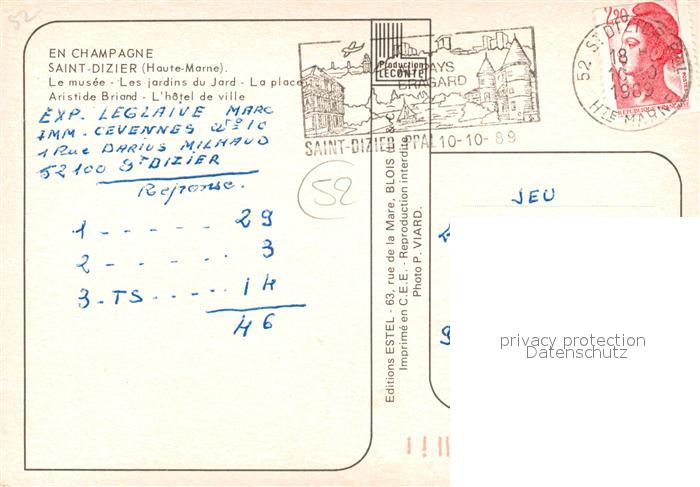 52
EN CHAMPAGNE
SAINT-DIZIER (Haute-Marne).
Le musée - Les jardins du Jard - La place
Aristide Briand - L'hôtel de ville
EXP. LEGLAIVE MARC
IMM. CEVENNES N° 10
1 Rue DARIUS MILHAUD
52100 ST DIZIER
Reponse.
1 - - - - - 29
2 - - - - - 3
3 - TS - - - - - 14
46
Production
LECONTE
PAYS
BRAGARD
SAINT-DIZIER PPAL 10-10-89
52
Editions ESTEL - 63, rue de la Mare, BLOIS
Imprimé en C.E.E. - Reproduction interdite
Photo P. VIARD.
2,20
52 ST DIZIER
18
10
1989
HTE MARNE
JEU
privacy protection
Datenschutz